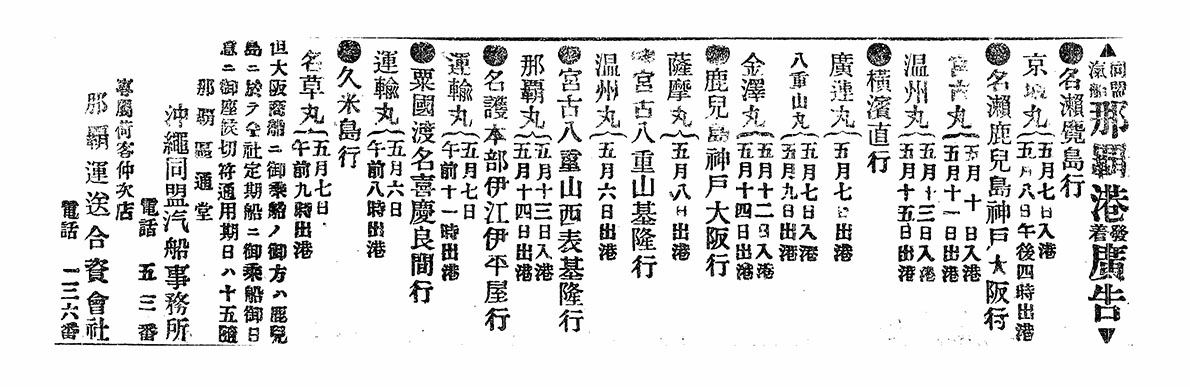 ▲同盟汽船那覇港發着廣告▼
●名瀬鹿兒島行
京城丸 五月七日入港
五月八日午後四時出港
●名瀬鹿兒島神戸大阪行
宮古丸 五月十日入港
五月十一日出港
温州丸 五月十三日入港
五月十五日出港
●横濱直行
廣運丸 五月七日出港
八重山丸 五月七日入港
五月九日出港
金澤丸 五月十二日入港
五月十四日出港
●鹿兒島神戸大阪行
薩摩丸 五月八日出港
●宮古八重山基隆行
温州丸 五月六日出港
●宮古八重山西表基隆行
那覇丸 五月十三日入港
五月十四日出港
●名護本部伊江伊平屋行
運輸丸 五月七日
午前十一時出港
●粟國渡名喜慶良間行
運輸丸 五月六日
午前八時出港
●久米島行
名草丸 五月七日
午前九時出港
但大阪商船ニ御乗船ノ御方ハ鹿兒
島ニ於テ仝社定期船ニ御乗船御日
意ニ御座候切符通用期日ハ十五
那覇區通堂
沖繩同盟汽船事務所
電話 五三番
專屬荷客仲次店
那覇運送合資會社
電話 一三六番